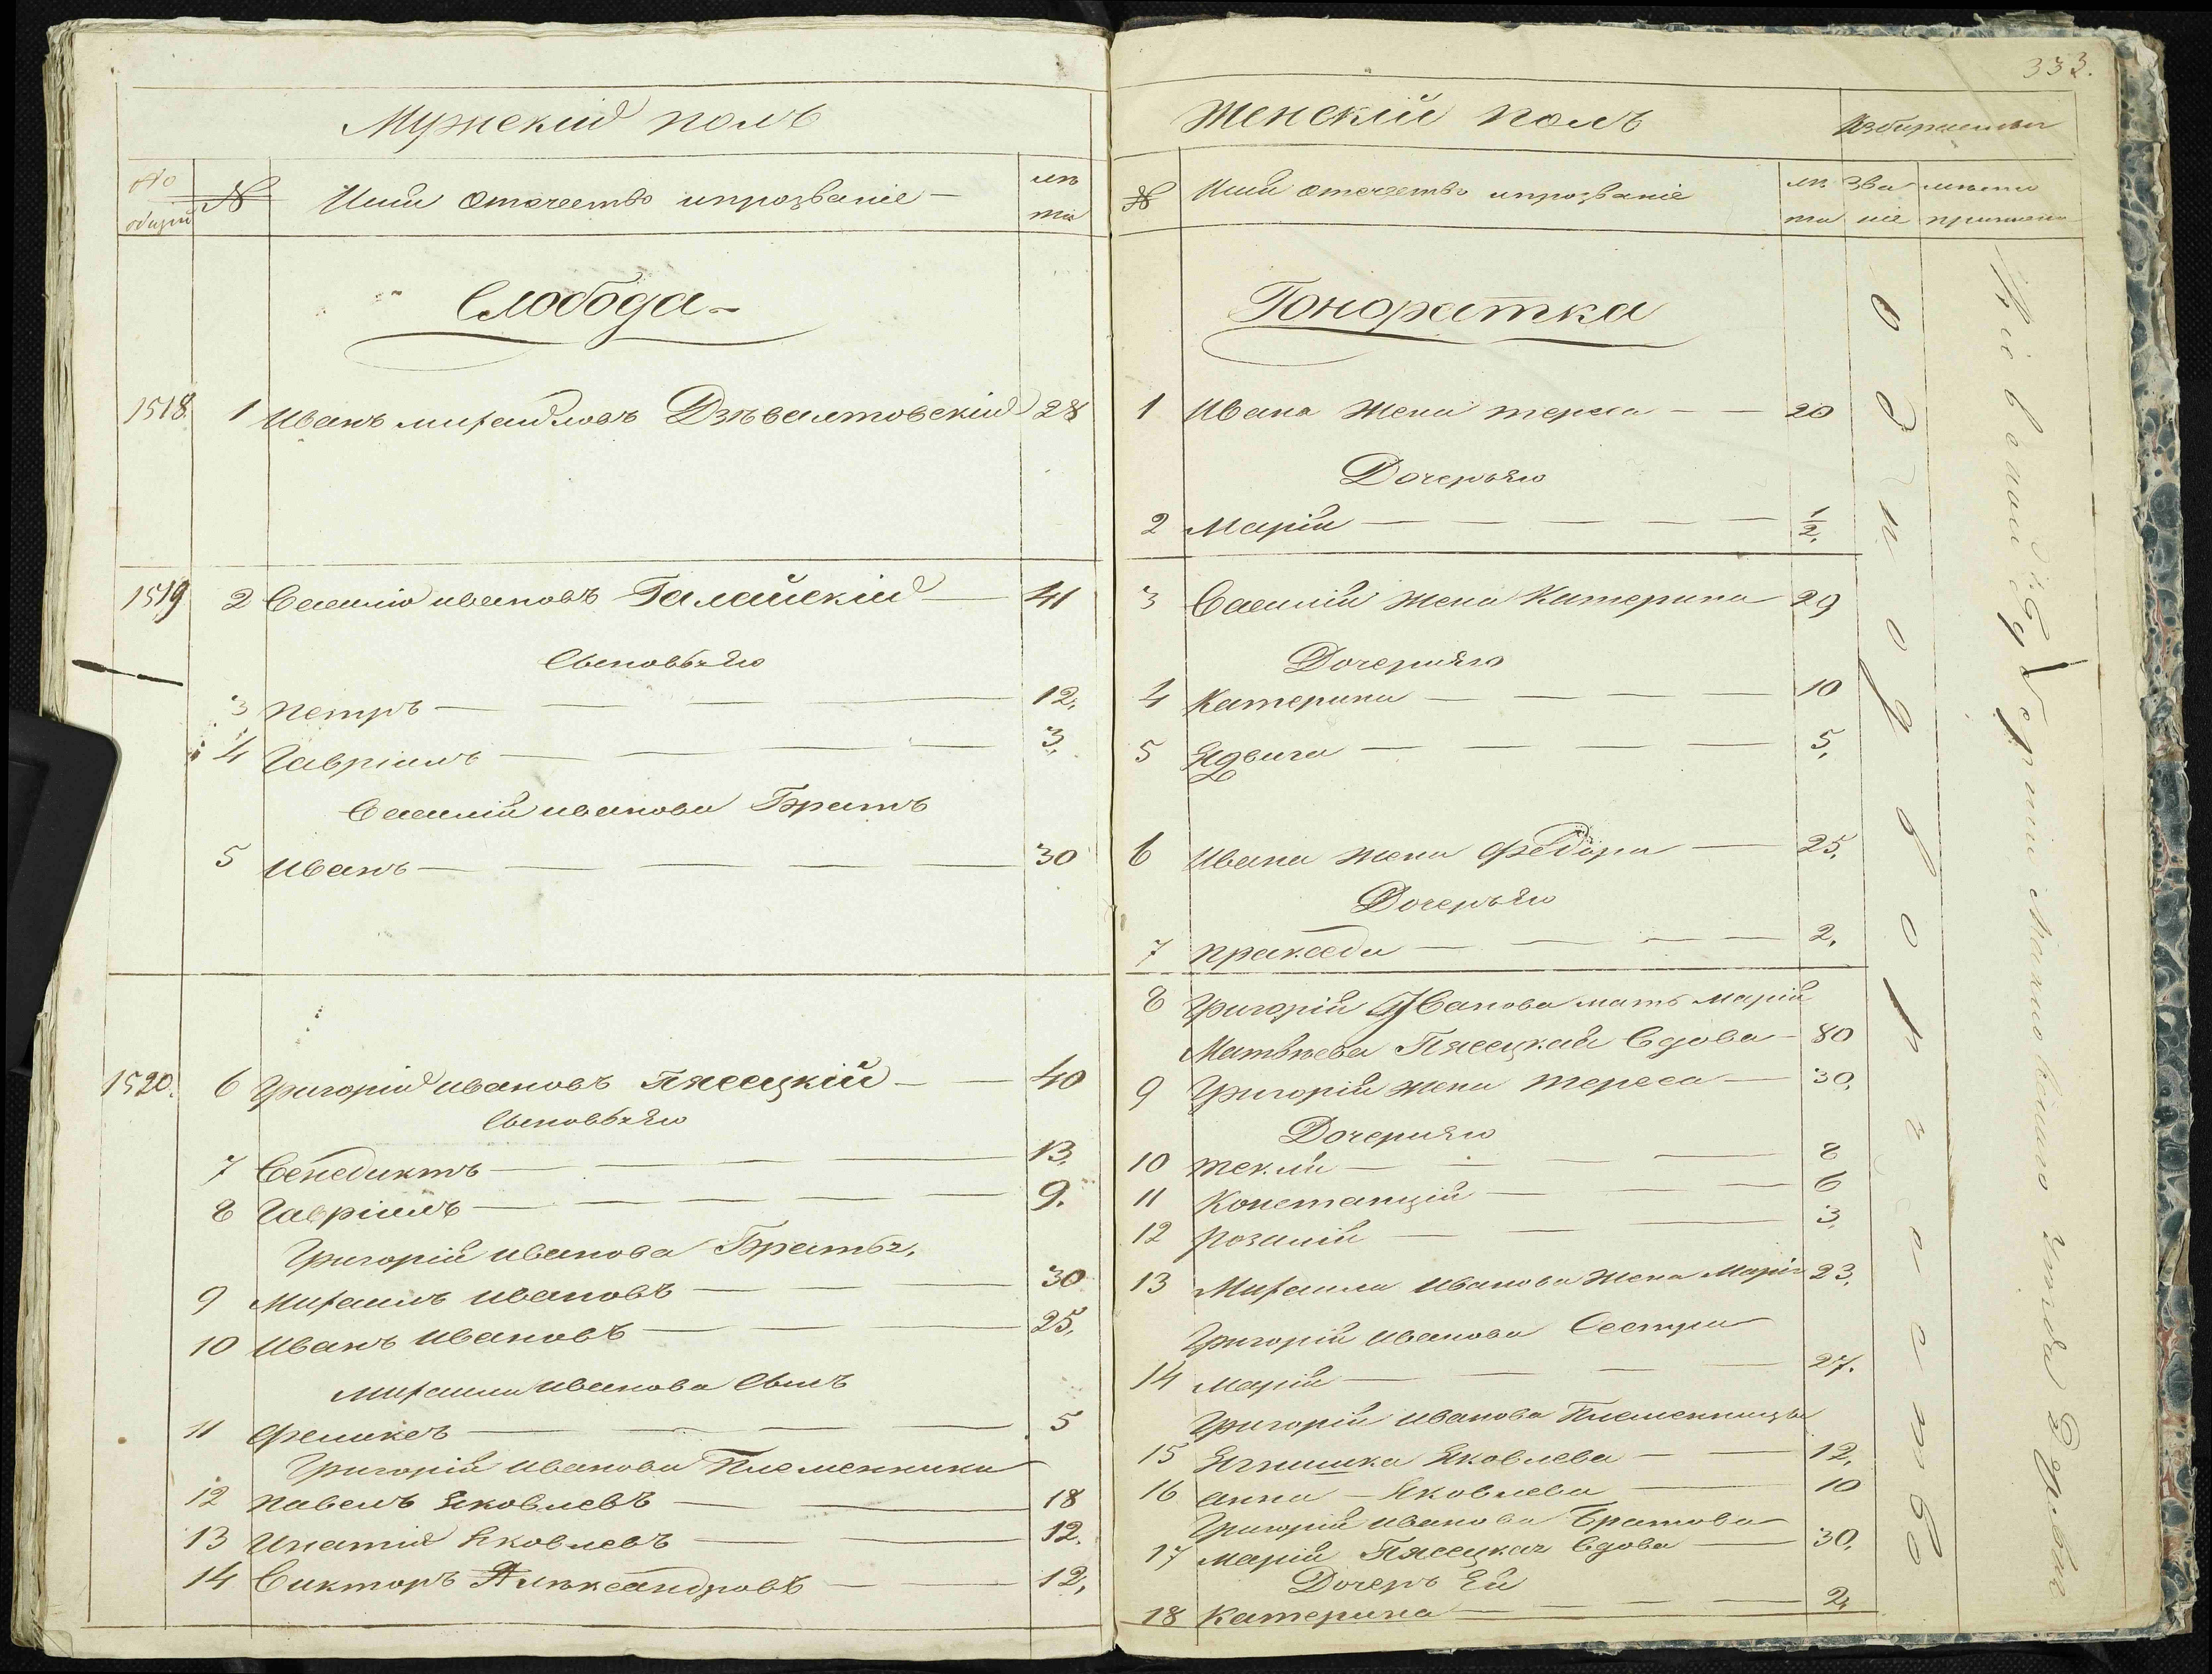 Мужескій полъ
№ общій
№
Имя отечество ипрозваніе
лѣта
Слобода
1518. 1 Иванъ михайловъ Дзѣвалтовскій 28
1519 2 Василій ивановъ Галайскій 41
Сыновья Ею
3 Петръ 12.
4 Гавріилъ 3.
Василія иванова Братъ
5 Иванъ 30
1520. 6 Григорій ивановъ Пясецкій 40
Сыновья Ею
7 Венедиктъ 13.
8 Гавріилъ 9.
Григорія иванова Братья,
9 Михаилъ ивановъ 30
10 Иванъ ивановъ 25.
михаила иванова Сынъ
11 Феликсъ 5
Григорія иванова Племенники
12 павелъ яковлевъ 18
13 Игнатій яковлевъ 12.
14 Викторъ Александровъ 12,
333.
Женскій полъ
Избираемы
№
Имя отечество ипрозваніе
лѣта
Званіе
мѣсто
Гоноратка
1 Ивана жена тереса 20
Дочерь Ею
2 Марія 1/2.
3 Василія жена Катерина 29
Дочери Ею
4 Катерина 10
5 Ядвига 5.
6 Ивана жена федора 25.
Дочерь Ею
7 пракседа 2.
8 Григорія Иванова мать марія
Матвѣева Пясецкая Вдова 80
9 Григорія жена тереса 30.
Дочери Ею
10 текля 8
11 Констанція 6
12 Розалія 3.
13 Михаила иванова жена марія 23.
Григорія иванова Сестра
14 марія 27.
Григорія иванова Племенницы
15 Ягнишка яковлева 12.
16 анна яковлева 10
Григорія иванова Братова
17 марія Пясецкая Вдова 30.
Дочерь Ей
18 Катерина 2.
однодворческое
Кіевской Губерніи